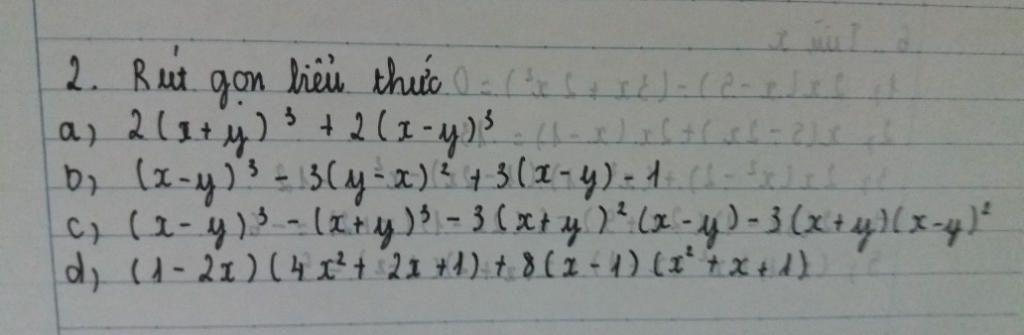 2. Rút gọn biểu thức
a) 2(x+y)³ + 2(x-y)³
b) (x-y)³ - 3(y-x)² + 3(x-y) - 1
c) (x-y)³ - (x+y)³ - 3(x+y)²(x-y) - 3(x+y)(x-y)²
d) (1-2x)(4x²+2x+1) + 8(x-1)(x²+x+1)